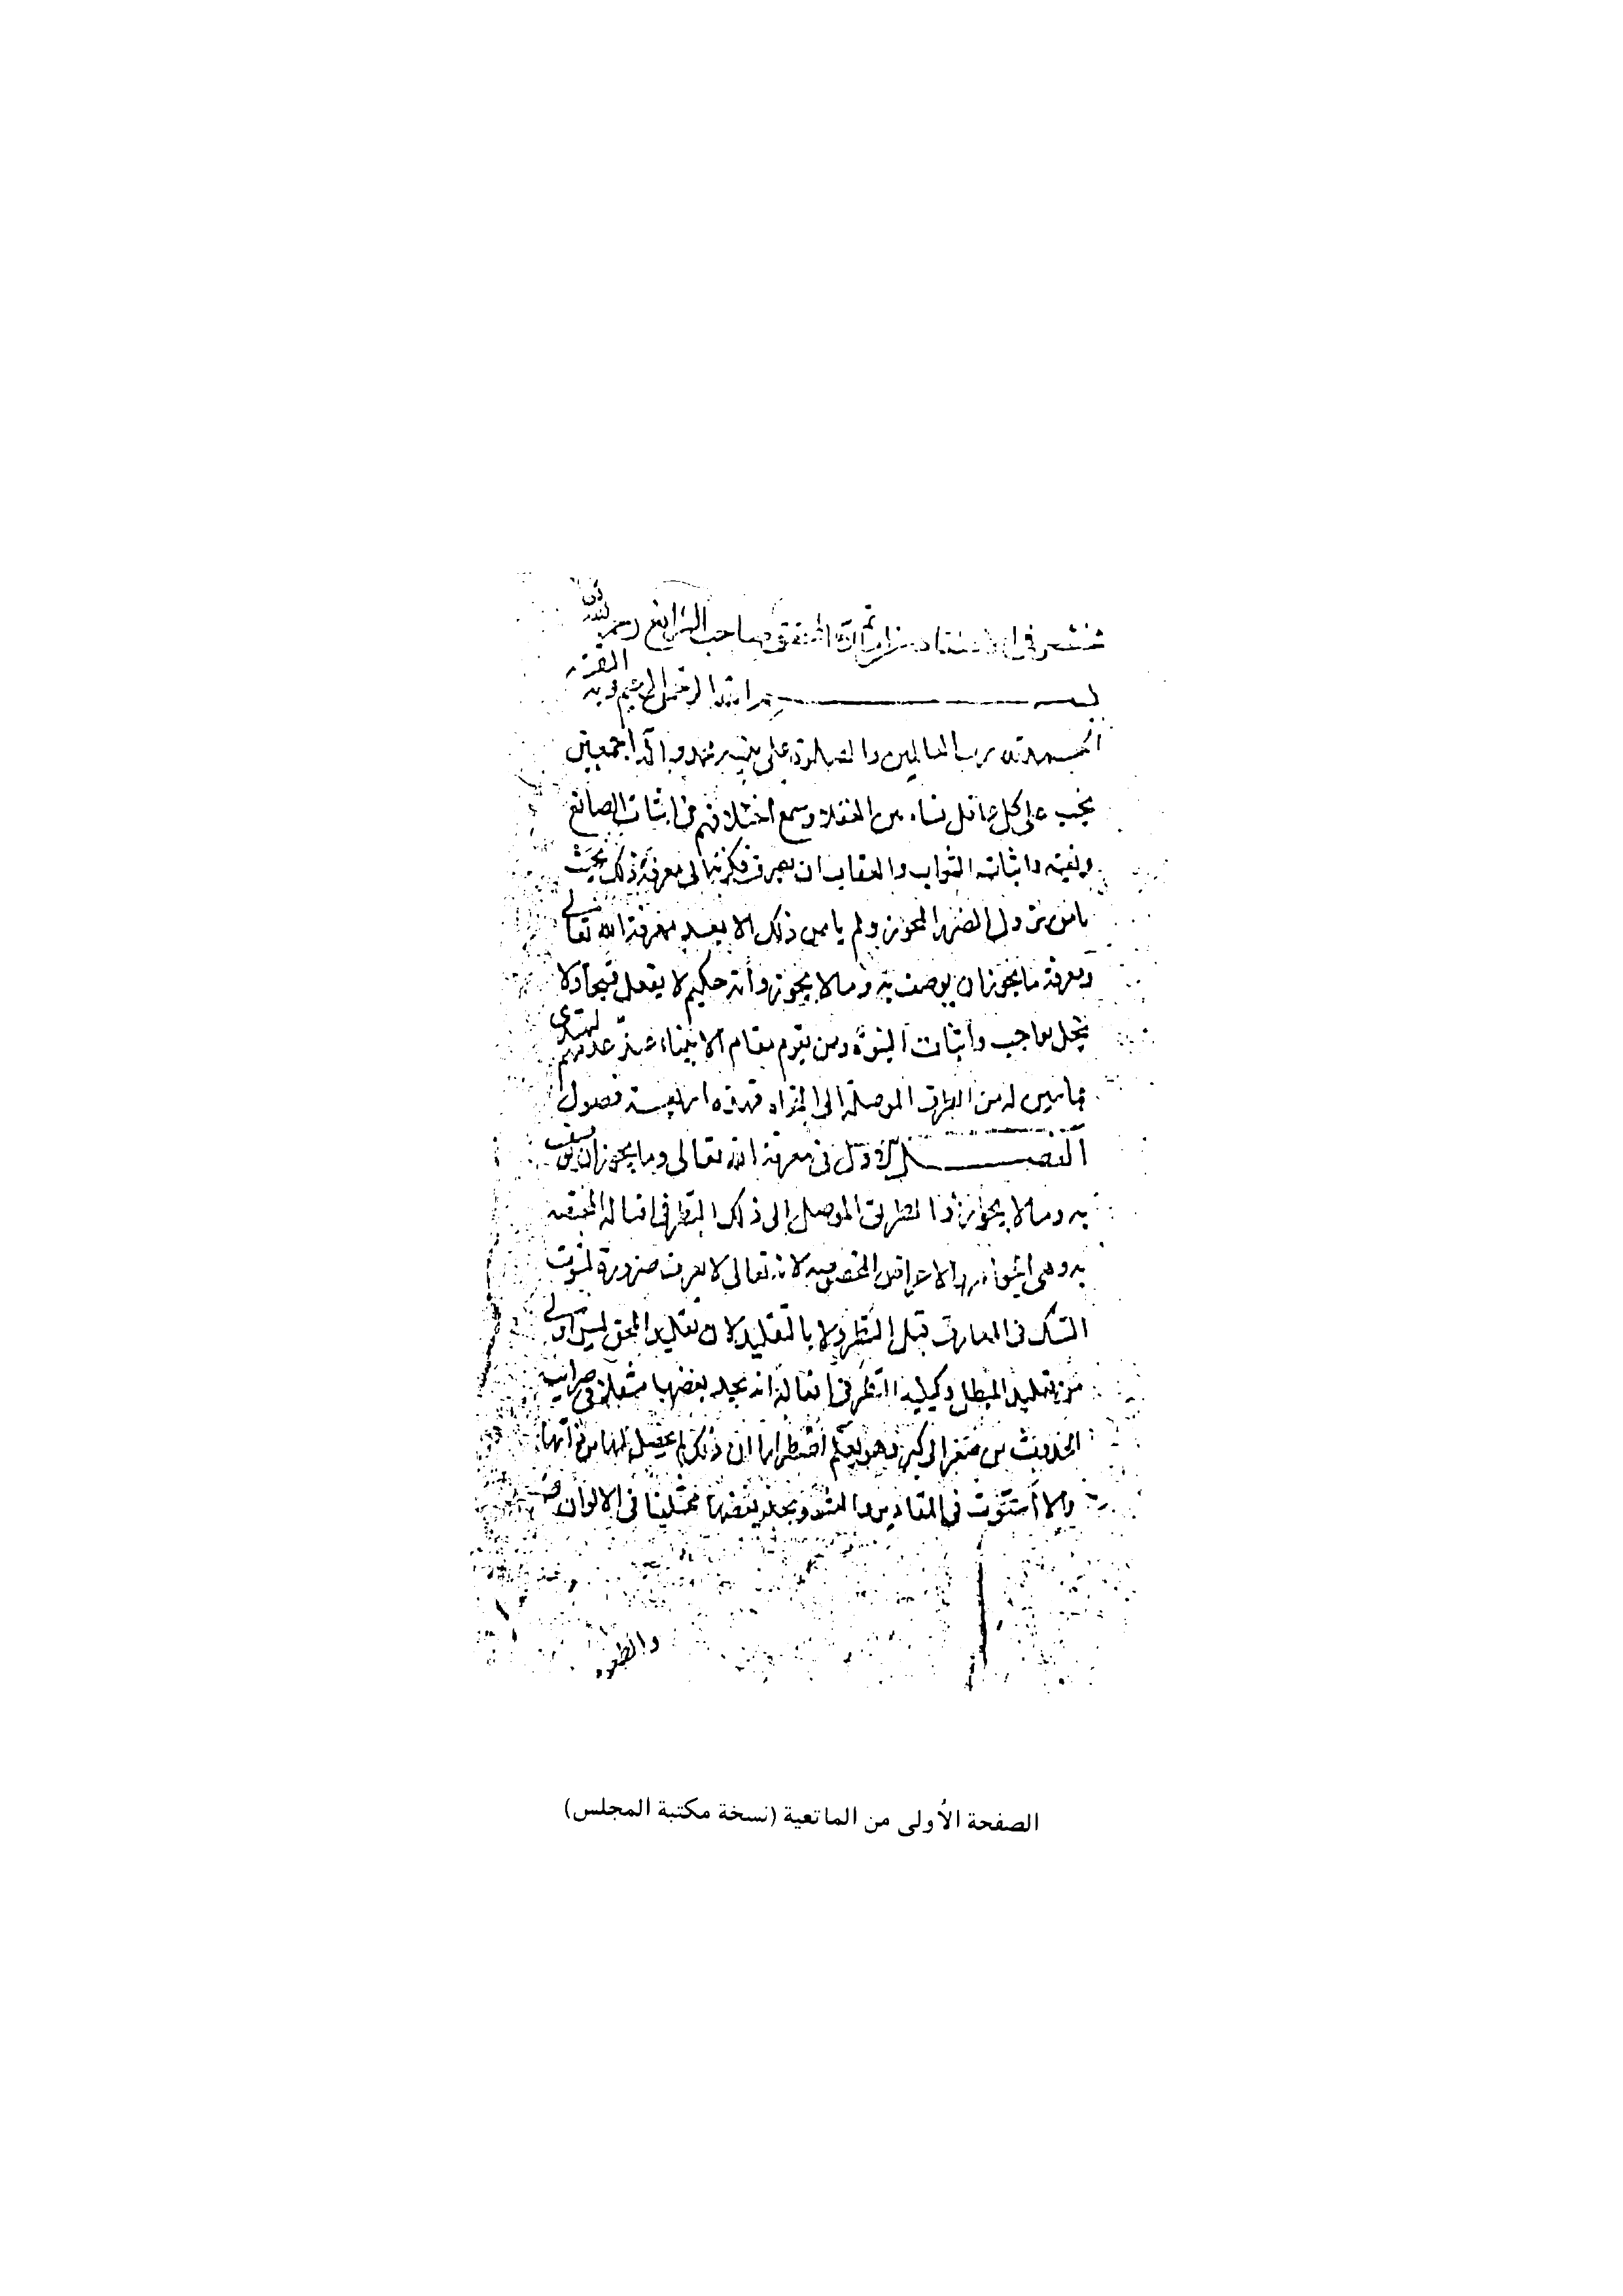 مختصر في الاعتقاد من إفادات المحقق صاحب الشرائع رحمه الله
بسم الله الرحمن الرحيم وبه الثقة
الحمد لله رب العالمين والصلوة على محمد وآله اجمعين
يجب على كل عاقل نشاء بين العقلاء وسمع اختلافهم في اثبات الصانع
ونفيه واثبات الثواب والعقاب ان يصرف فكرته الى معرفة ذلك بحيث
يامن نزول الضرر المجوز ولم يامن ذلك الا بعد معرفة الله تعالى
ومعرفة ما يجوز ان يوصف به وما لا يجوز وأنه حكيم لا يفعل قبيحا ولا
يخل بواجب واثبات النبوة ومن يقوم مقام الانبياء عند عدمهم ليهتدى
بما يبين له من الطرق الموصلة الى المراد فهذه اربعة فصول
الفصل الاول في معرفة الله تعالى وما يجوز ان يوصف
به وما لا يجوز والطريق الموصل الى ذلك النظر في افعاله المختصة
به وهي الجواهر والاعراض المخصوصة لانه تعالى لا يعرف ضرورة لثبوت
الشك في المعارف قبل النظر ولا بالتقليد لان تقليد المحق ليس اولى
من تقليد المبطل وكيفية النظر في افعاله انه يجد بعضها متنقلة في مراتب
الحدوث من صغر الى كبر وهو يعلم اضطرارا ان ذلك لم يحصل لها من ذاتها
والا استوت في المقادير والنشو ويجد بعضها مختلفا في الالوان
والطعوم
الصفحة الأولى من الماتعية (نسخة مكتبة المجلس)